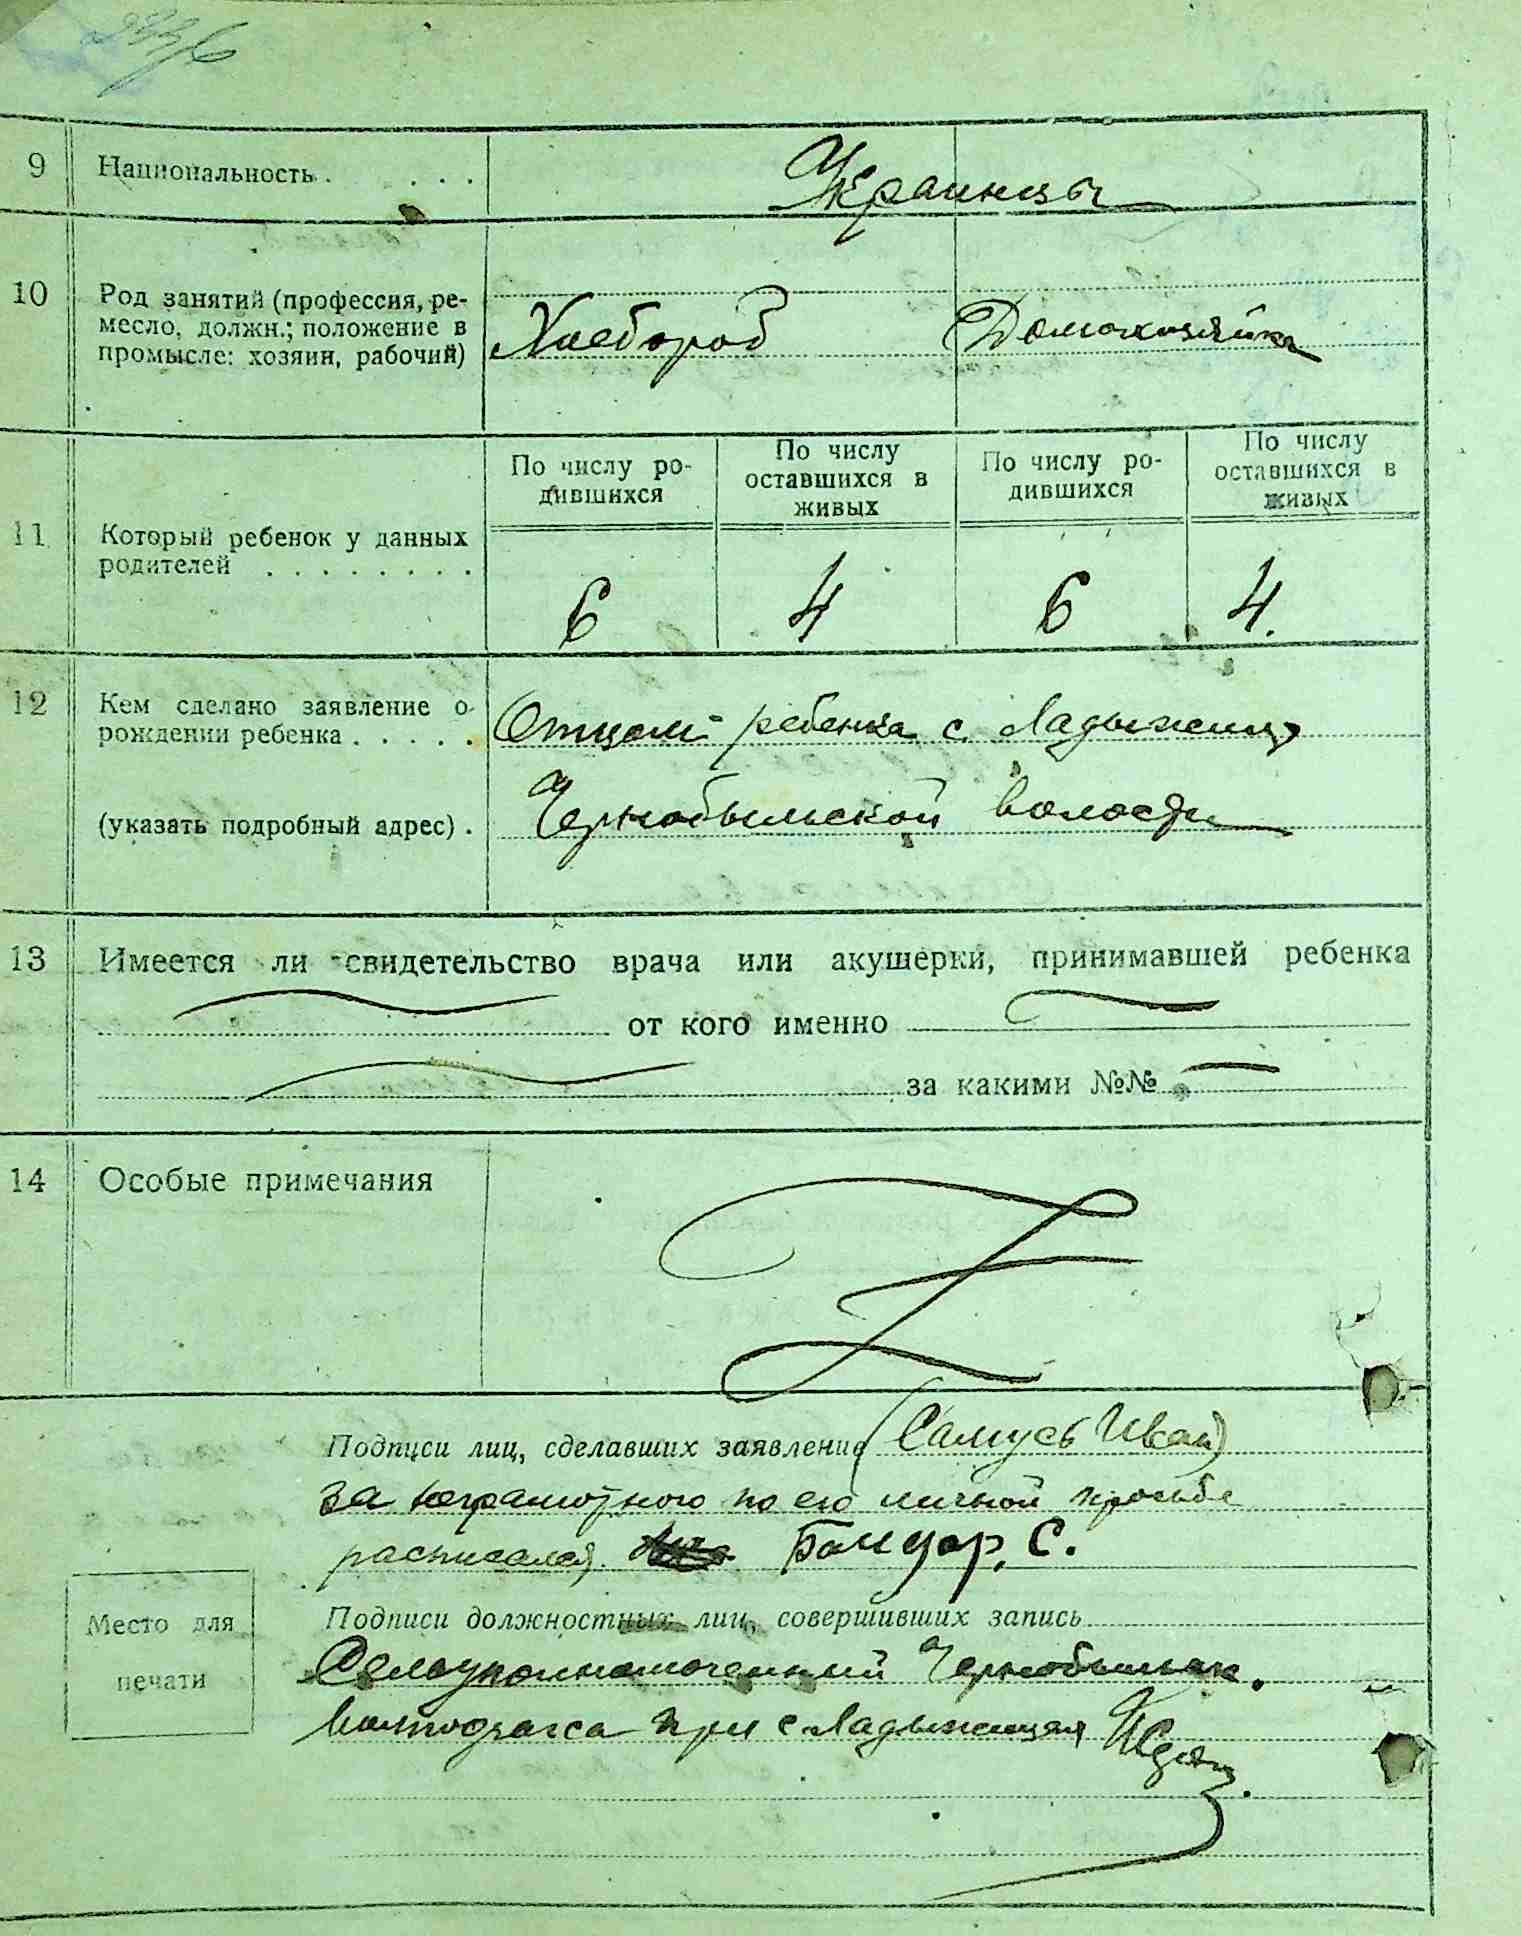 9 Национальность . . . . Украинцы
10 Род занятий (профессия, ре-
месло, должн.; положение в
промысле: хозяин, рабочий)
Хлебороб Домохозяйка
По числу ро-
дившихся
По числу
оставшихся в
живых
По числу ро-
дившихся
По числу
оставшихся в
живых
11 Который ребенок у данных
родителей . . . . . . . .
6 4 6 4.
12 Кем сделано заявление о
рождении ребенка . . . . .
(указать подробный адрес) .
Отцом ребенка с. Ладыжичи
Чернобыльской волости
13 Имеется ли свидетельство врача или акушерки, принимавшей ребенка
от кого именно
за какими №№
14 Особые примечания
Подписи лиц, сделавших заявление (Самусь Иван)
за неграмотного по его личной просьбе
расписался Бондар, С.
Место для
печати
Подписи должностных лиц, совершивших запись
Селоуполномоченный Чернобыльск.
волподзагса при с. Ладыжицах